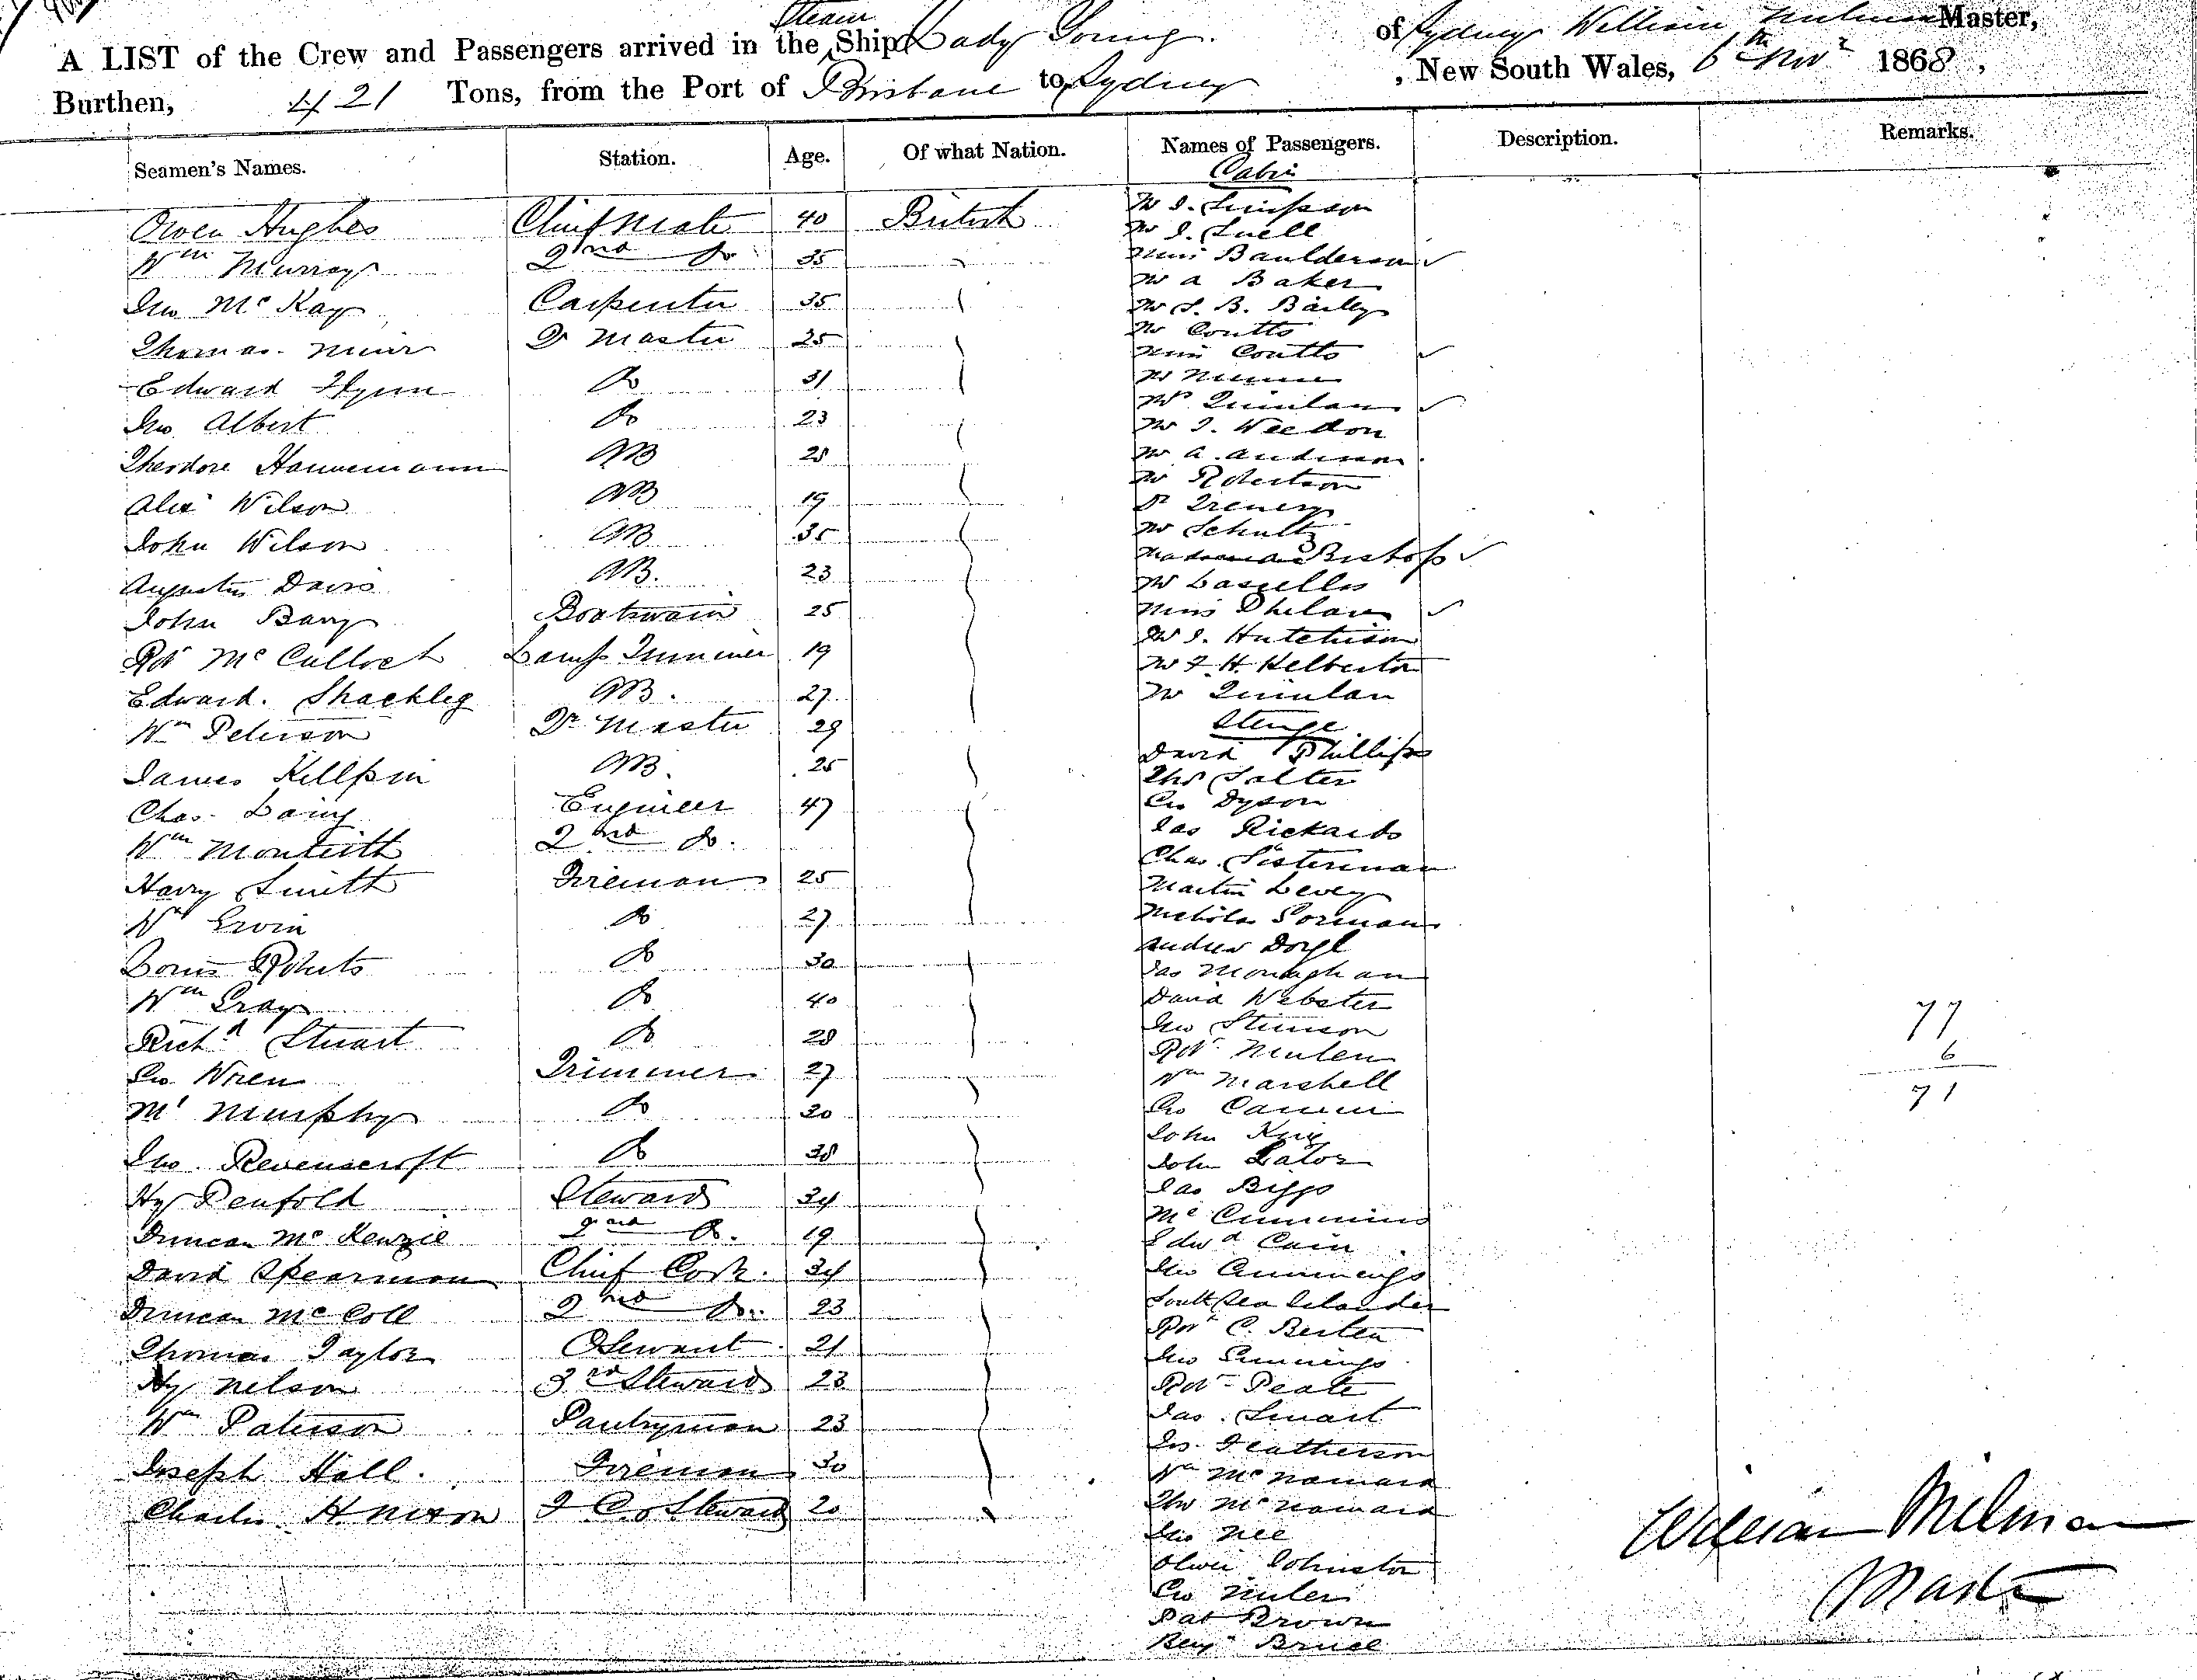 Steam
A LIST of the Crew and Passengers arrived in the Ship Lady Young. of Sydney William Milman Master,
Burthen, 421 Tons, from the Port of Brisbane to Sydney , New South Wales, 6th Novr 1868 ,
Seamen's Names. Station. Age. Of what Nation. Names of Passengers. Description. Remarks.
Cabin
Owen Hughes Chief Mate 40 British
Wm Murray 2nd Do 35
Jno McKay Carpenter 35
Thomas Muir Qr Master 25
Edward Flynn Do 31
Jno Albert Do 23
Theodore Hannemann AB 28
Alexr Wilson AB 19
John Wilson AB 35
Augustus Davis AB. 23
John Barry Boatswain 25
Robt McCulloch Lamp Trimmer 19
Edward. Shackley AB. 27
Wm Peterson Qr Master 29
James Killpin AB. 25
Chas. Laing Engineer 47
Wm Monteith 2nd Do.
Harry Smith Fireman 25
Wm Irwin Do 27
Louis Roberts Do 30
Wm Gray Do 40
Richd Stuart Do 28
Geo. Wren Trimmer 27
Ml Murphy Do 30
Jno. Ravenscroft Do 38
Hy Penfold Steward 34
Duncan McKenzie 2nd Do. 19
David Spearman Chief Cook. 34
Duncan McColl 2nd Do. 23
Thomas Taylor 21
Hy Nelson 3rd Steward 23
Wm Paterson Pantryman 23
Joseph Hall. Fireman 30
Charles H Nixon Steward 20
Mr J. Simpson
Mr J. Snell
Miss Baulderson ✓
Mr A Baker
Mr S. B. Bailey
Mr Coutts
Miss Coutts ✓
Mr
Mrs Quinlan ✓
Mr J. Weedon
Mr A. Anderson
Mr Robertson
Dr
Mr Schultz
Bishop ✓
Mr Lascelles
Miss Phelan ✓
Mr J. Hutchison
Mr F. H. Helberton
Mr Quinlan
Steerge
David Phillips
Thos Salter
Geo Dyson
Jas Rickards
Chas. Sisterman
Martin Levey
Nicholas Sorman
Andrew Doyle
Jas Monaghan
David Webster
Jno Stimson
Robt
Wm Marshell
Geo
John King
John Lalor
Jas Biggs
Mc Cummins
Edwd Cain
Jno Cummings
South Sea Islander
Robt C.
Jno Cummings
Robt Peate
Jas. Smart
Jos. Featherson
Wm McNamara
Thos McNamara
Jno Nee
Oliver Johnston
Geo Miller
Pat Brown
Benjn Bruce
77
6
71
William Milman
Master